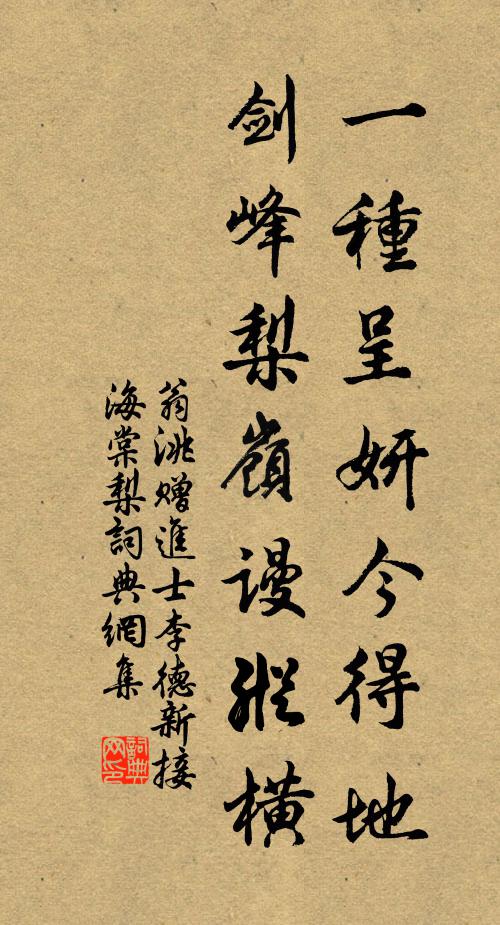 一種呈妍今得地
劍峰梨嶺謾縱橫
翁洮赠進士李德新接
海棠梨詞典網集
詞典
网印